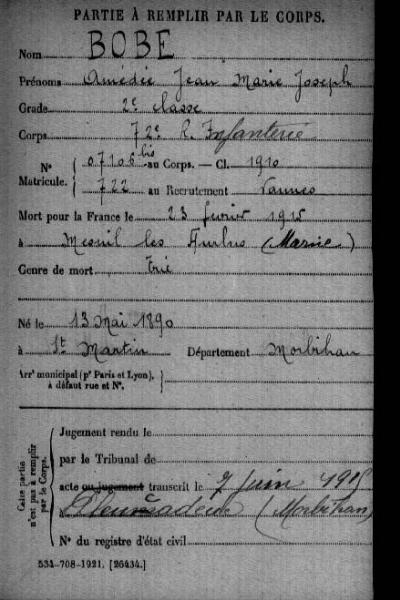 PARTIE À REMPLIR PAR LE CORPS.
Nom BOBE
Prénoms Amédée Jean Marie Joseph
Grade 2e classe
Corps 72e R. Infanterie
N° 07106 bis au Corps. — Cl. 1910
Matricule. 722 au Recrutement Vannes
Mort pour la France le 23 février 1915
à Mesnil les Hurlus (Marne)
Genre de mort Tué
Né le 13 Mai 1890
à St Martin Département Morbihan
Arrt municipal (pr Paris et Lyon),
à défaut rue et N°.
Cette partie
n'est pas à remplir
par le Corps.
Jugement rendu le
par le Tribunal de
acte ou jugement transcrit le 7 juin 1915
à Pleucadeuc (Morbihan)
N° du registre d'état civil
534-708-1921. [26434.]